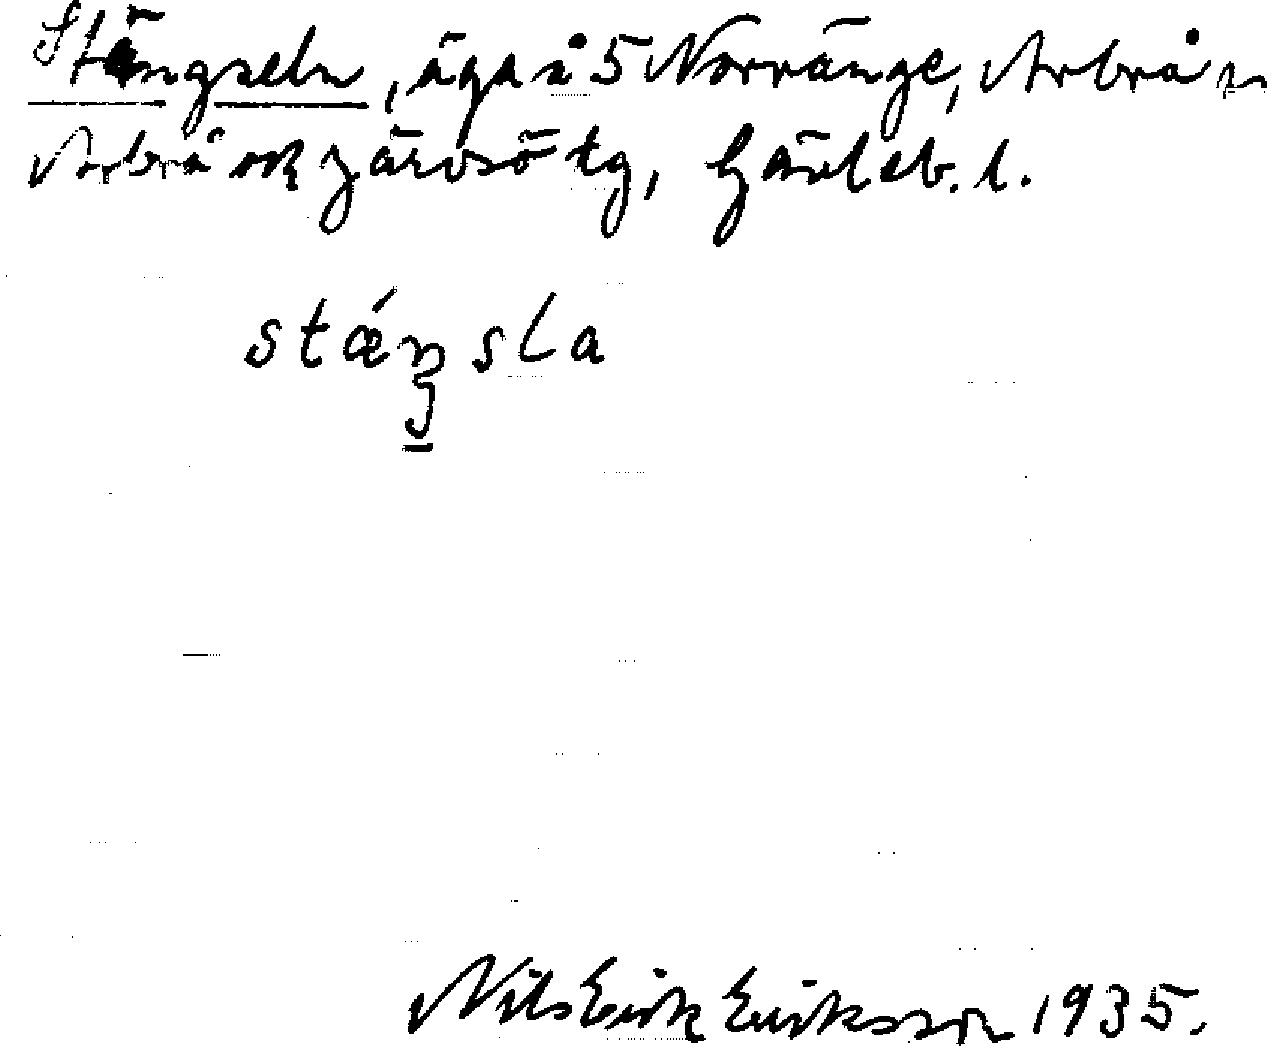 Stängseln, äga å 5 Norränge, Arbrå sn
Arbrå ock Järvsö tg, Gävleb. l.
stáŋsla
Nils Erik Eriksson 1935.